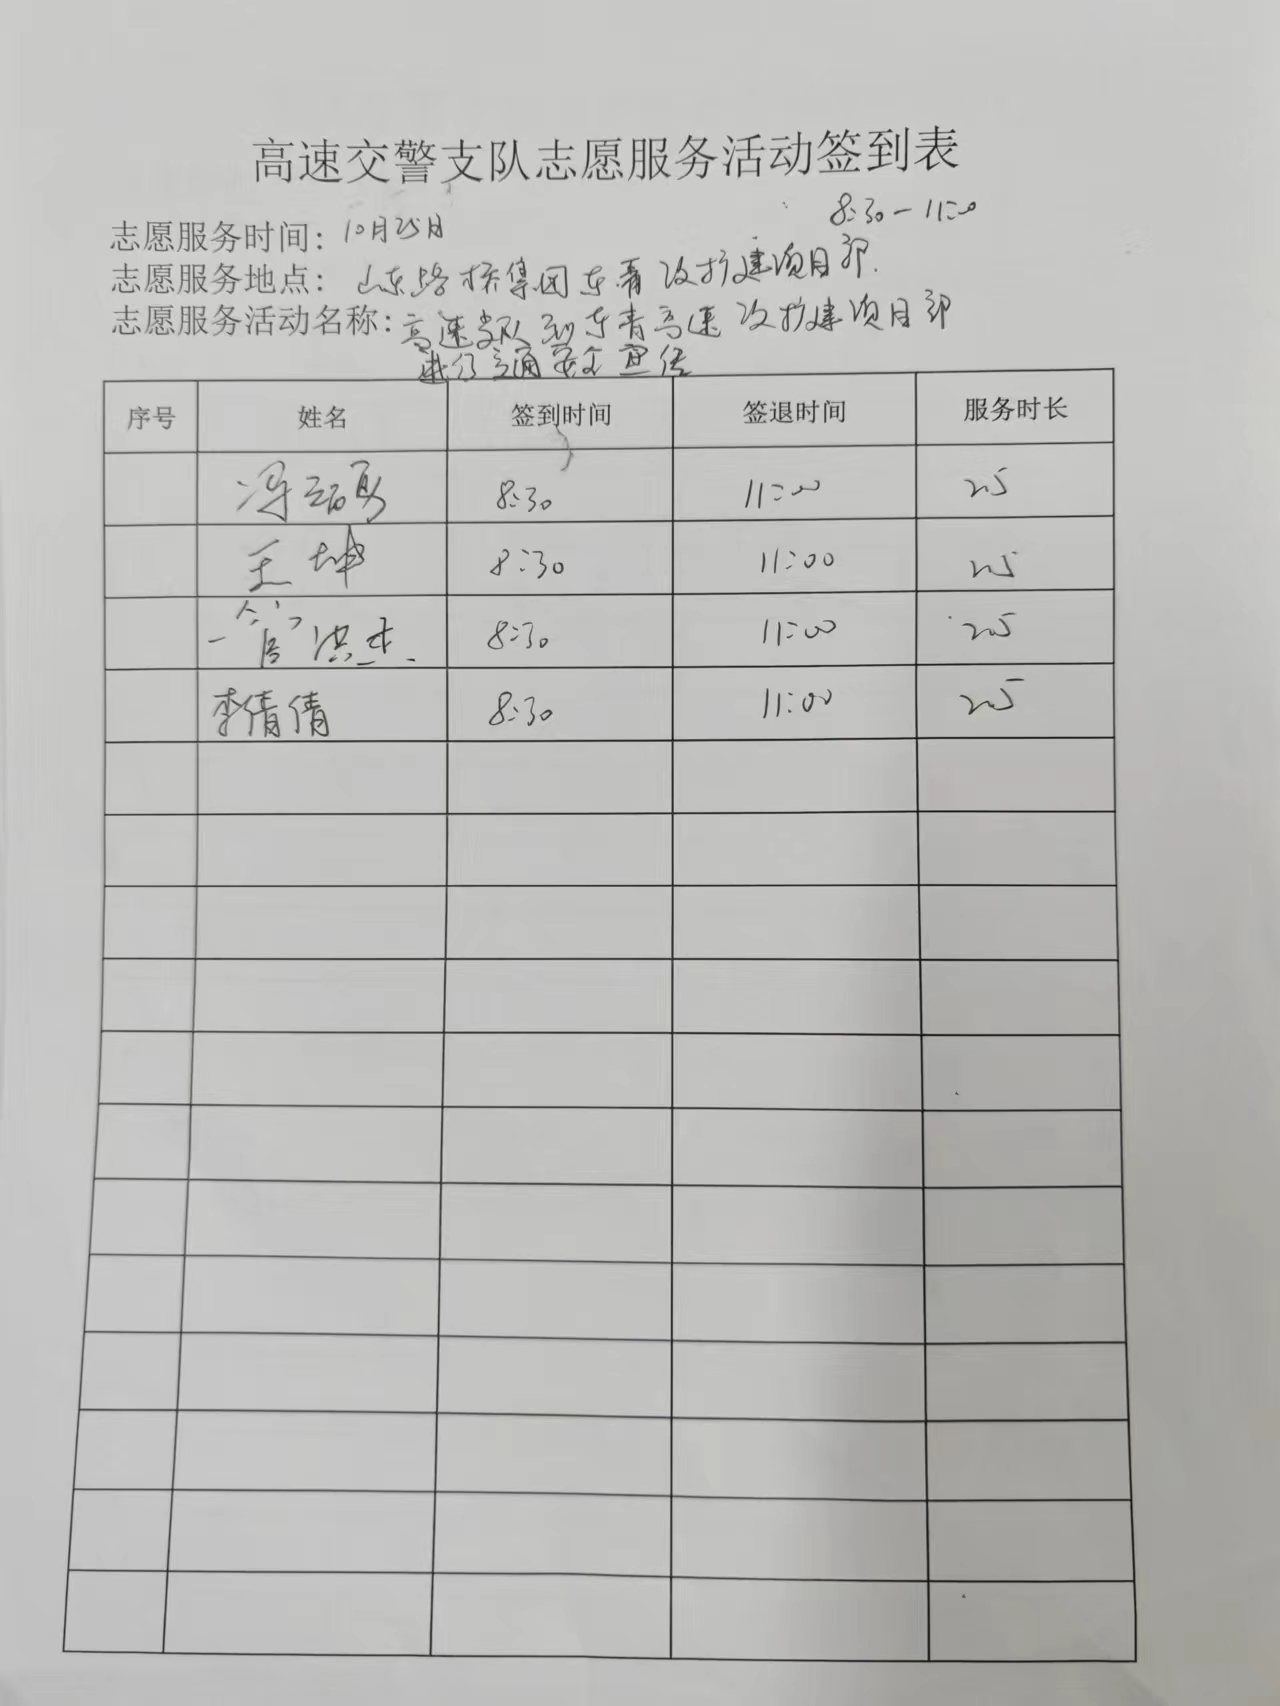 高速交警支队志愿服务活动签到表
8:30-11:00
志愿服务时间：10月25日
志愿服务地点：山东路桥集团东青改扩建项目部.
志愿服务活动名称：高速支队到东青高速改扩建项目部
进行交通安全宣传
序号 姓名 签到时间 签退时间 服务时长
冯 8:30 11:00 2.5
王坤 8:30 11:00 2.5
管洪杰 8:30 11:00 2.5
李倩倩 8:30 11:00 2.5